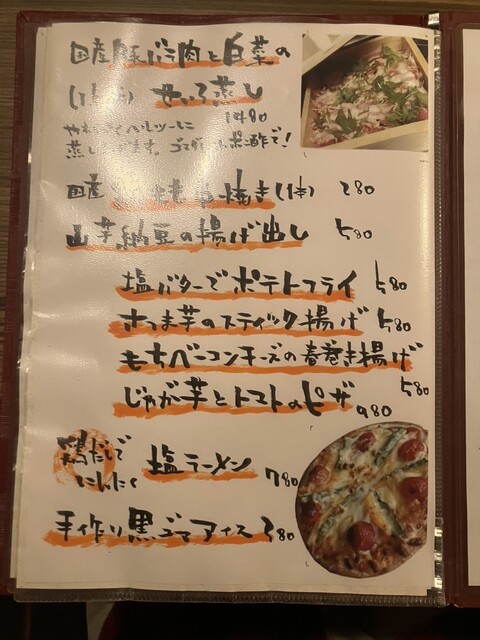 国産豚バラ肉と白菜の
せいろ蒸し
1480
蒸し ます。ゴマダレ ポン酢で!
国産 もも 焼き(1本) 280
山芋納豆の揚げ出し 580
塩バターでポテトフライ 580
さつま芋のスティック揚げ 580
もちベーコンチーズの春巻き揚げ
580
じゃが芋とトマトのピザ 980
鶏だしで
にんにく
塩ラーメン 780
手作り黒ゴマアイス 380